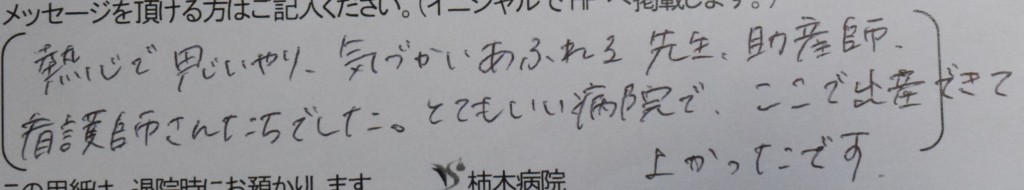 メッセージを頂ける方はご記入ください。(イニシャルでHPへ掲載します。)
熱心で思いやり、気づかいあふれる先生、助産師、
看護師さんたちでした。とてもいい病院で、ここで出産できて
よかったです
この用紙は、退院時にお預かりします
柿木病院